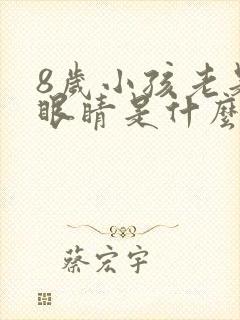 8歲小孩老是
眼睛是什麼
蔡宏宇